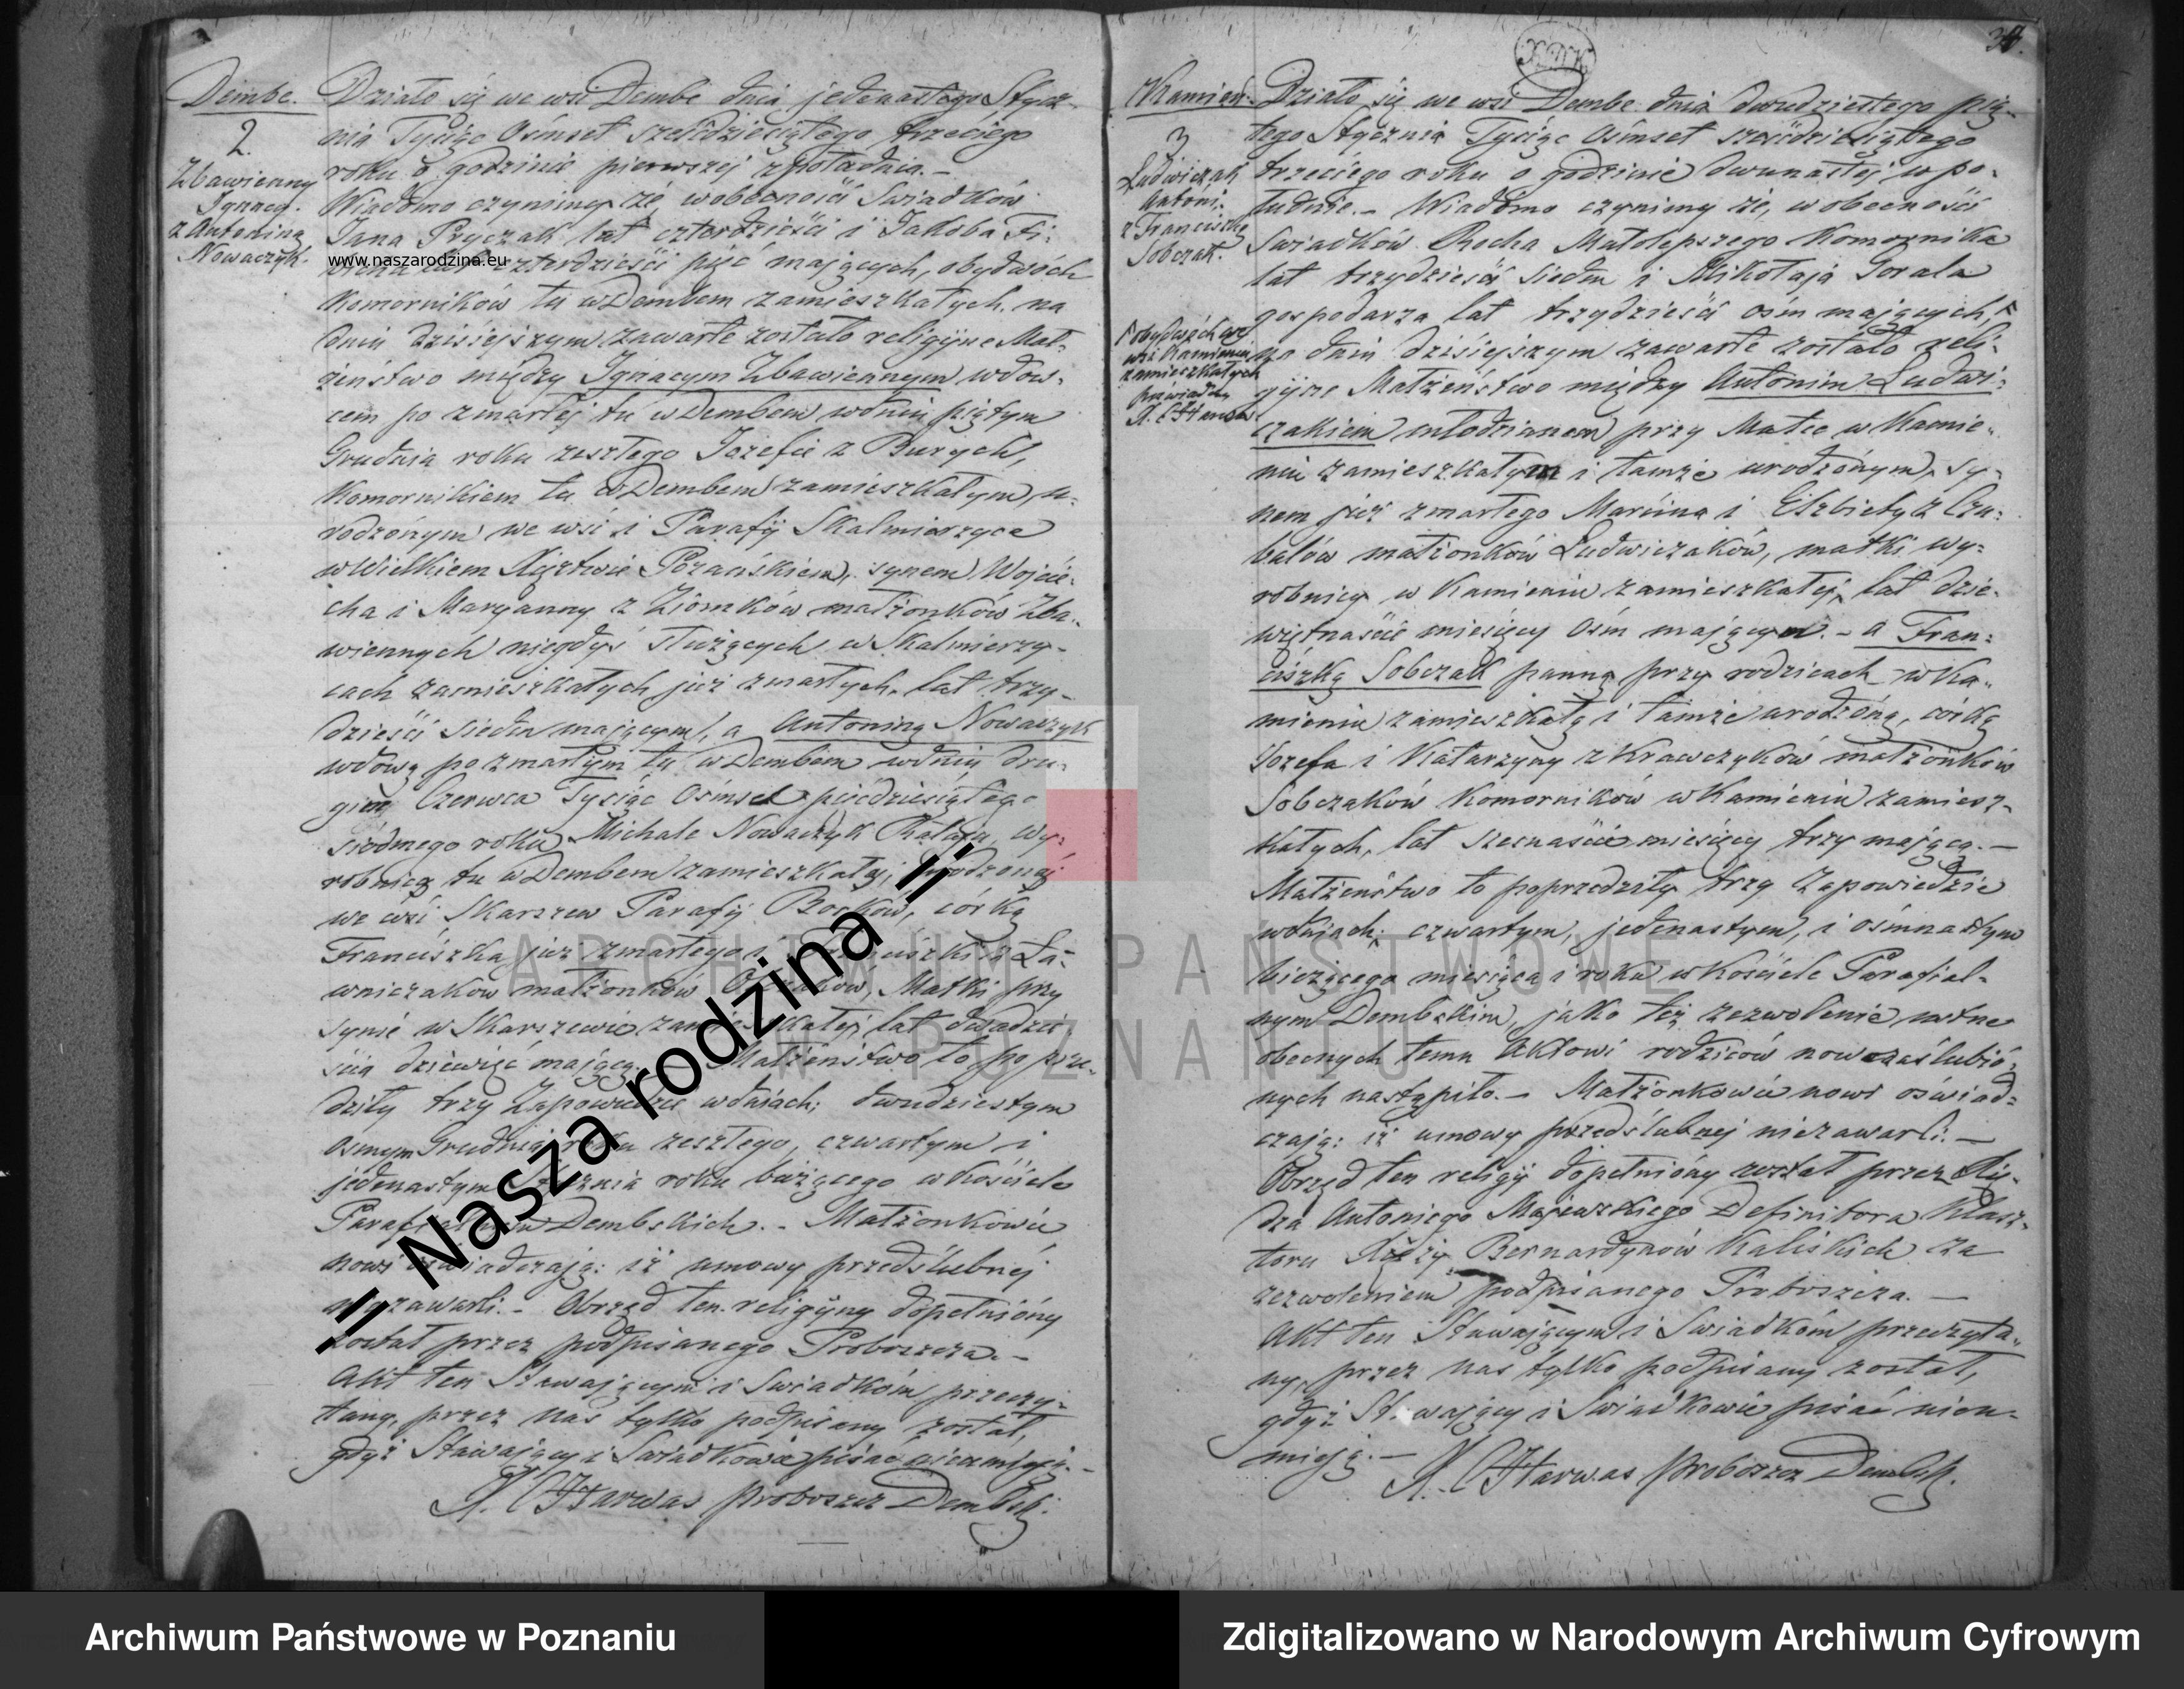 Dembe.
2.
Zbawienny
Ignacy.
z Antoniną
Nowaczyk.
Działo się we wsi Dembe dnia jedenastego Stycz-
nia Tysiąc Ośmset sześćdziesiątego trzeciego
roku o godzinie pierwszej z południa. –
Wiadomo czyniemy że wobecności Swiadków
Jana Pryczak lat czterdzieści i Jakóba Fi-
czterdzieści pięć mających, obydwóch
Komorników tu w Dembem zamieszkałych, na
dniu dzisiejszym zawarte zostało religijne Mał-
żeństwo między Ignacym Zbawiennym wdow-
cem po zmarłej tu w Dembem w dniu piątym
Grudnia roku zeszłego Józefie z Burych,
Komornikiem tu w Dembem zamieszkałym, u-
rodzonym we wsi i Parafij Skalmierzyce
w Wielkiem Xięztwie Poznańskiem, synem Wojcie-
cha i Maryanny z Ziomków małżonków Zba-
wiennych niegdyś służących w Skalmierzy-
cach zamieszkałych już zmarłych, lat trzy-
dzieści siedm mającym, a Antoniną Nowaczyk
wdową po zmarłym tu w Dembem w dniu dru-
gim Czerwca Tysiąc Ośmset pięćdziesiątego
siódmego roku Michale Nowaczyk wy-
robnicą tu w Dembem zamieszkałej, urodzonej
we wsi Skarszew Parafij Borków, córką
Franciszka już zmarłego i z Ła-
wniczaków małżonków Matki przy
synie w Skarszewie zamieszkałej, lat dwadzie-
ścia dziewięć mającą. Małżeństwo to poprze-
dziły trzy Zapowiedzie w dniach: dwudziestym
ósmym Grudnia roku zeszłego, czwartym i
jedenastym Stycznia roku bieżącego w Kościele
Parafialnym Dembskich. – Małżonkowie
nowi oświadczają: iż umowy przedślubnej
niezawarli. – Obrzęd ten religijny dopełniony
został przez podpisanego Proboszcza. –
Akt ten Stawającym i Świadkom przeczy-
tany, przez nas tylko podpisany został,
gdyż Stawający i Swiadkowie pisać nieumieją. –
X. Harwas Proboszcz Dembski.
www.naszarodzina.eu
30.
Kamień.
3
Ludwiczak
Antoni.
z Franciszką
Sobczak.
obydwóch we
wsi Kamieniu
zamieszkałych
X. Harwas
Działo się we wsi Dembe dnia dwudziestego pią-
tego Stycznia Tysiąc Ośmset sześćdziesiątego
trzeciego roku o godzinie dwunastej w po-
łudnie. – Wiadomo czynimy że, w obecności
Swiadków Rocha Małolepszego Komornika
lat trzydzieści siedm i Mikołaja Gorala
gospodarza lat trzydzieści ośm mających,
na dniu dzisiejszym zawarte zostało reli-
gijne Małżeństwo między Antonim Ludwi-
czakiem młodzianem przy Matce w Kamie-
niu zamieszkałym i tamże urodzonym, sy-
nem już zmarłego Marcina i Elżbiety z Czu-
bałów małżonków Ludwiczaków, matki wy-
robnicy w Kamieniu zamieszkałej, lat dzie-
więtnaście miesięcy ośm mającym. – a Fran-
ciszką Sobczak panną przy rodzicach w Ka-
mieniu zamieszkałą i tamże urodzoną, córką
Józefa i Katarzyny z Krawczyków małżonków
Sobczaków Komorników w Kamieniu zamiesz-
kałych, lat szesnaście miesięcy trzy mającą. –
Małżeństwo to poprzedziły trzy Zapowiedzie
w dniach: czwartym, jedenastym, i ośmnastym
bieżącego miesiąca i roku w Kościele Parafial-
nym Dembskim, jako też zezwolenie ustne
obecnych temu Aktowi rodziców nowozaślubio-
nych nastąpiło. – Małżonkowie nowi oświad-
czają: iż umowy przedślubnej niezawarli. –
Obrzęd ten religij dopełniony został przez Xię-
dza Antoniego Majewskiego Definitora Klasz-
toru Xięży Bernardynów Kaliskich za
zezwoleniem podpisanego Proboszcza. –
Akt ten Stawającym i Swiadkom przeczyta-
ny, przez nas tylko podpisany został,
gdyż Stawający i Swiadkowie pisać nieu-
mieją. –
X. Harwas Proboszcz Dembsk.
= Nasza rodzina =
ARCHIWUM PAŃSTWOWE
W POZNANIU
Archiwum Państwowe w Poznaniu
Zdigitalizowano w Narodowym Archiwum Cyfrowym